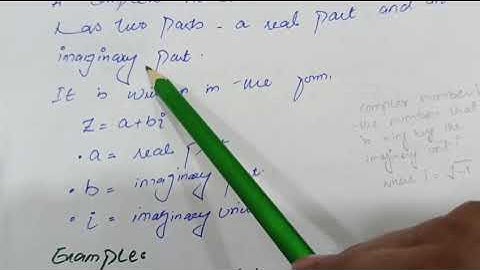 has two parts - a real part and an
imaginary part.
It is written in the form.
Z = a+bi
• a = real part
• b = imaginary part.
• i = imaginary unit
Example:
complex number
the number that
is by the
imaginary unit i
where i = √-1